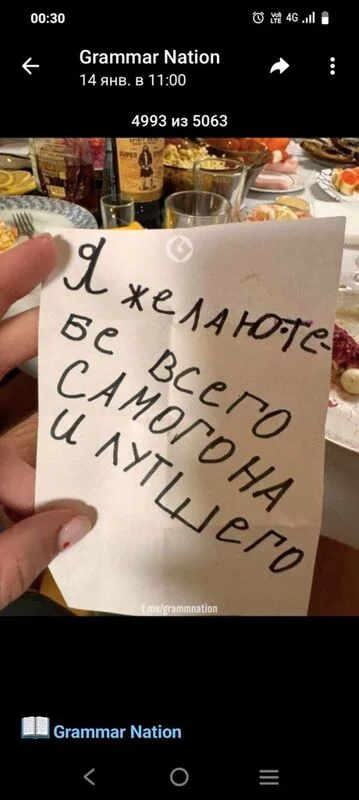 00:30
VoLTE 4G
Grammar Nation
14 янв. в 11:00
4993 из 5063
Я желаюте-
бе всего
самогона
и лутшего
t.me/grammnation
Grammar Nation